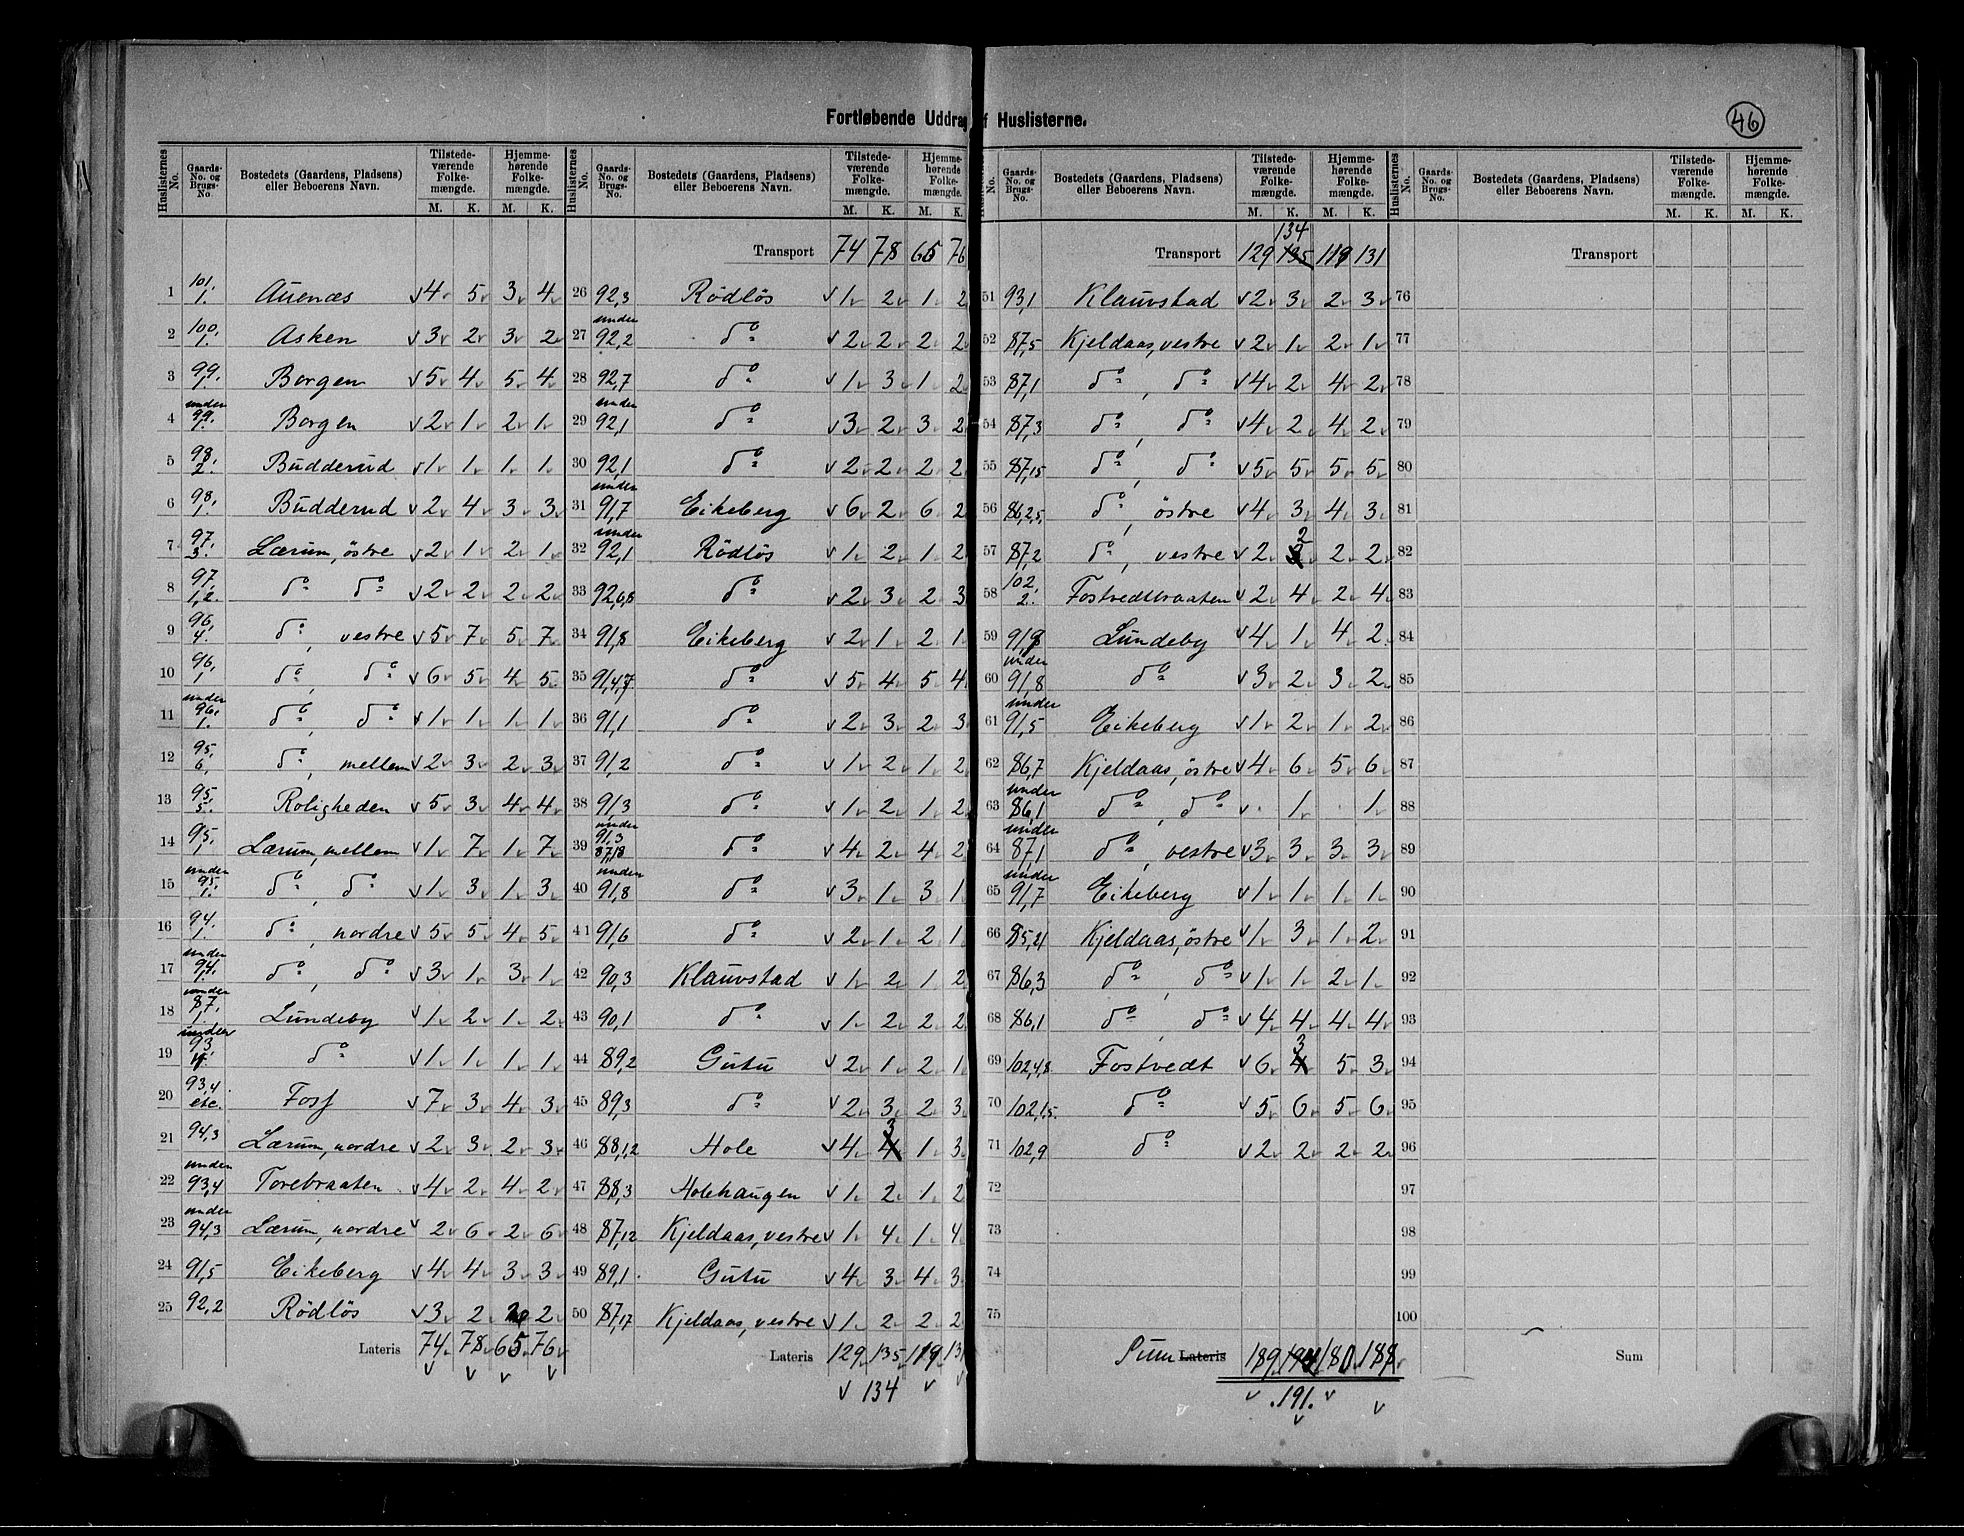 Fortløbende Uddrag af Huslisterne.
46
Huslisternes No. | Gaards-No. og Brugs-No. | Bostedets (Gaardens, Pladsens) eller Beboerens Navn. | Tilstedeværende Folkemængde. M. K. | Hjemmehørende Folkemængde. M. K.
1 101,1. Auenæs 4 5 3 4
2 100,1. Asken 3 2 3 2
3 99,1 Borgen 5 4 5 4
4 under 99,1. Borgen 2 1 2 1
5 98,2. Budderud 1 1 1 1
6 98,1 Budderud 2 4 3 3
7 97,3. Lærum, östre 2 1 2 1
8 97,1,2. do do 2 2 2 2
9 96,4. do, vestre 5 7 5 7
10 96,1 do, do 6 5 4 5
11 under 96,1. do, do 1 1 1 1
12 95,6, do, mellem 2 3 2 3
13 95,5. Roligheden 5 3 4 4
14 95,1 Lærum, mellem 1 7 1 7
15 under 95,1. do, do 1 3 1 3
16 94,1. do, nordre 5 5 4 5
17 under 94,1. do, do 3 1 3 1
18 under 87,1. Lundeby 1 2 1 2
19 under 93 do 1 1 1 1
20 93,4 etc. Foss 7 3 4 3
21 94,3 Lærum, nordre 2 3 2 3
22 under 93,4 Torebraaten 4 2 4 2
23 under 94,3 Lærum, nordre 2 6 2 6
24 91,5 Eikeberg 4 4 3 3
25 92,2 Rödlös 3 2 2 2
Lateris 74 78 65 76
Transport 74 78 65 76
26 92,3 Rödlös 1 2 1 2
27 under 92,2 do 2 2 2 2
28 92,7 do 1 3 1 2
29 under 92,1 do 3 2 3 2
30 92,1 do 2 2 2 2
31 under 91,7 Eikeberg 6 2 6 2
32 under 92,1 Rödlös 1 2 1 2
33 92,6,8 do 2 3 2 3
34 91,8 Eikeberg 2 1 2 1
35 91,4,7. do 5 4 5 4
36 91,1 do 2 3 2 3
37 91,2 do 1 2 1 2
38 91,3 do 1 2 1 2
39 under 91,3 87,18 do 4 2 4 2
40 under 91,8 do 3 1 3 1
41 91,6 do 2 1 2 1
42 90,3 Klauvstad 1 2 1 2
43 90,1 do 1 2 2 2
44 89,2 Gutu 2 1 2 1
45 89,3 do 2 3 2 3
46 88,1,2 Hole 4 4 3 1 3
47 88,3 Holehaugen 1 2 1 2
48 87,12 Kjeldaas, vestre 1 4 1 4
49 89,1. Gutu 4 3 4 3
50 87,17 Kjeldaas, vestre 1 2 2 2
Lateris 129 135 119 131
134
Huslisternes No. | Gaards-No. og Brugs-No. | Bostedets (Gaardens, Pladsens) eller Beboerens Navn. | Tilstedeværende Folkemængde. M. K. | Hjemmehørende Folkemængde. M. K.
134
Transport 129 135 119 131
51 93,1 Klauvstad 2 3 2 3
52 87,5 Kjeldaas, vestre 2 1 2 1
53 87,1 do, do 4 2 4 2
54 87,3 do, do 4 2 4 2
55 87,15 do, do 5 5 5 5
56 86,2,5. do, östre 4 3 4 3
57 87,2 do, vestre 2 2 2 2
58 102,2. Fostvedtbraaten 2 4 2 4
59 91,8 Lundeby 4 1 4 2
60 under 91,8 do 3 2 3 2
61 under 91,5 Eikeberg 1 2 1 2
62 86,7 Kjeldaas, östre 4 6 5 6
63 under 86,1 do, do . 1 . 1
64 under 87,1 do, vestre 3 3 3 3
65 under 91,7 Eikeberg 1 1 1 1
66 85,21 Kjeldaas, östre 1 3 1 2
67 86,3 do, do 1 1 2 1
68 86,1 do, do 4 4 4 4
69 102,4,8. Fostvedt 6 4 3 5 3
70 102,1,5. do 5 6 5 6
71 102,9 do 2 2 2 2
72
73
74
75
Sum Lateris 189 194 180 188
191.
Transport
76
77
78
79
80
81
82
83
84
85
86
87
88
89
90
91
92
93
94
95
96
97
98
99
100
Sum